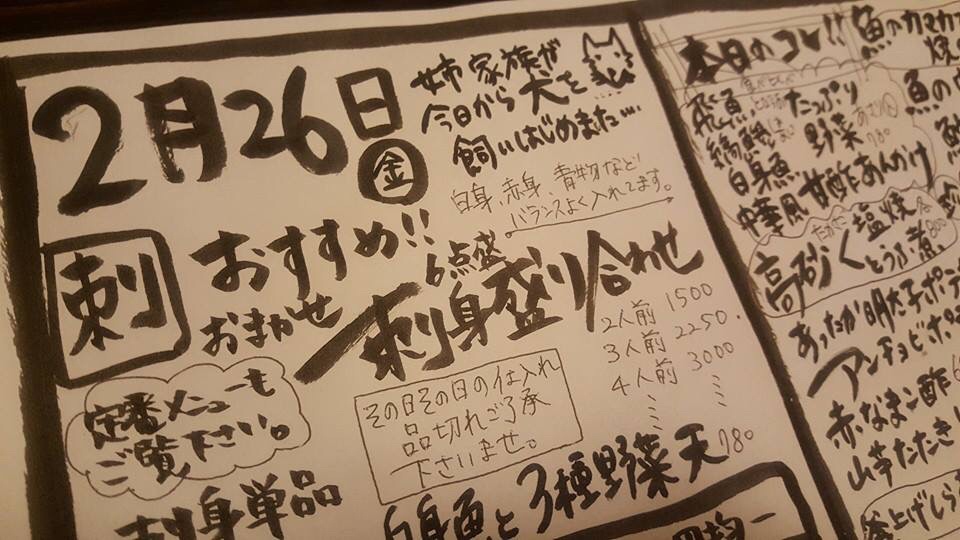 2月26日
金
姉家族が
今日から犬を
飼いはじめました…
白身、赤身、青物など
バランスよく入れてます。
刺
おすすめ!!
おまかせ
6点盛
刺身盛り合わせ
2人前 1500
3人前 2250.
4人前 3000
定番メニューも
ご覧下さい。
その日その日の仕入れ
品切れご了承
下さいませ。
刺身単品
白身魚と3種野菜天 780
本日のコレ!!
飛魚
たっぷり
野菜
780
白身魚
中華風 甘酢あんかけ
塩焼
高砂
とうふ煮
800
あったか明太子ポテ
アンチョビポ
赤なまこ酢
山芋たたき
釜上げしら
魚のカマカ
焼
魚の